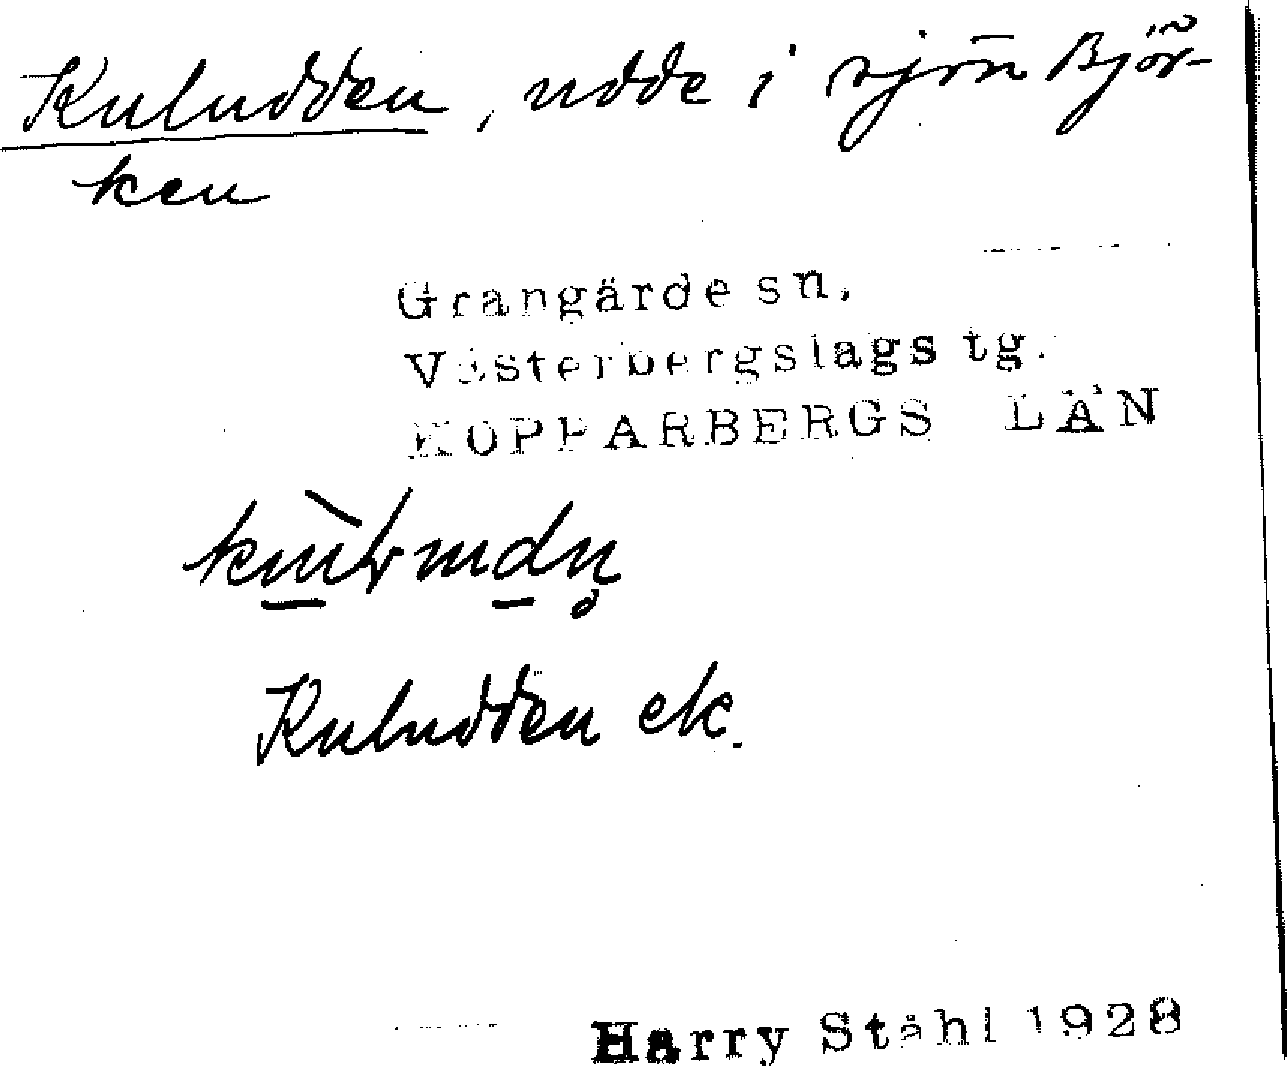 Kuludden, udde i sjön Björ-
ken
Grangärde sn.
Västerbergslags tg.
KOPPARBERGS LÄN
Kuludden ek.
Harry Ståhl 1928